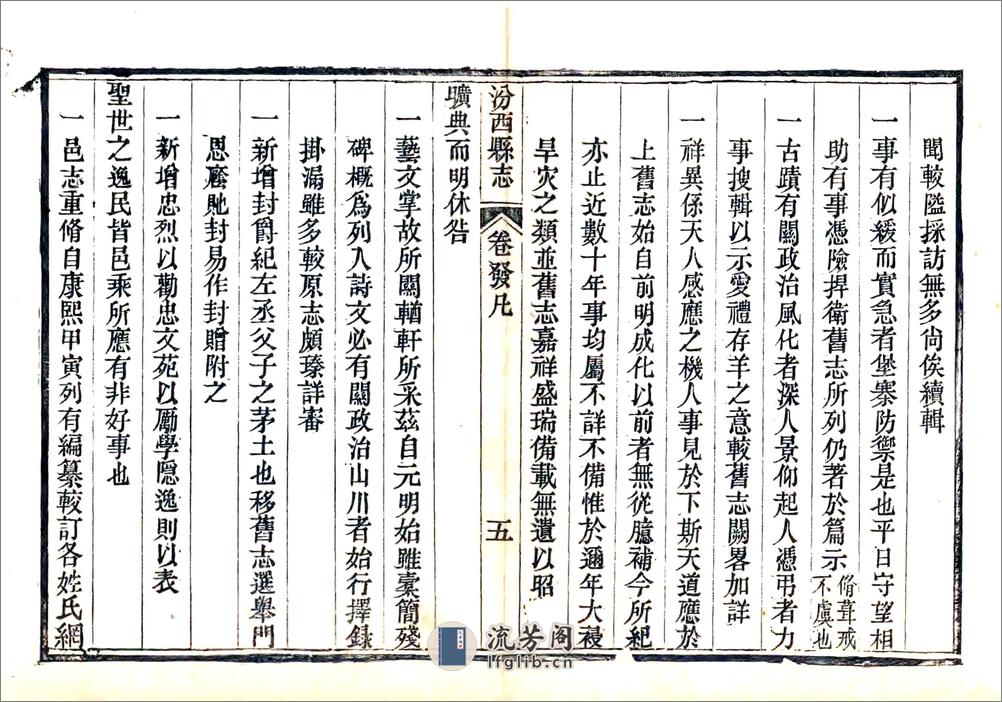 聞較隘採訪無多尙俟續輯
一事有似緩而實急者堡寨防禦是也平日守望相
助有事憑險捍衛舊志所列仍著於篇示脩葺戒不虞也
一古蹟有關政治風化者深人景仰起人憑弔者力
事搜輯以示愛禮存羊之意較舊志闕畧加詳
一祥異係天人感應之機人事見於下斯天道應於
上舊志始自前明成化以前者無從臆補今所紀
亦止近數十年事均屬不詳不備惟於邇年大祲
旱灾之類並舊志嘉祥盛瑞備載無遺以昭
曠典而明休咎
汾西縣志
卷發凡
五
一藝文掌故所關輶軒所采茲自元明始雖橐簡殘
碑概爲列入詩文必有關政治山川者始行擇錄
掛漏雖多較原志頗臻詳審
一新增封爵紀左丞父子之茅土也移舊志選舉門
恩廕貤封易作封贈附之
一新增忠烈以勸忠文苑以勵學隱逸則以表
聖世之逸民皆邑乘所應有非好事也
一邑志重脩自康熙甲寅列有編纂較訂各姓氏網
流芳阁
lfglib.cn